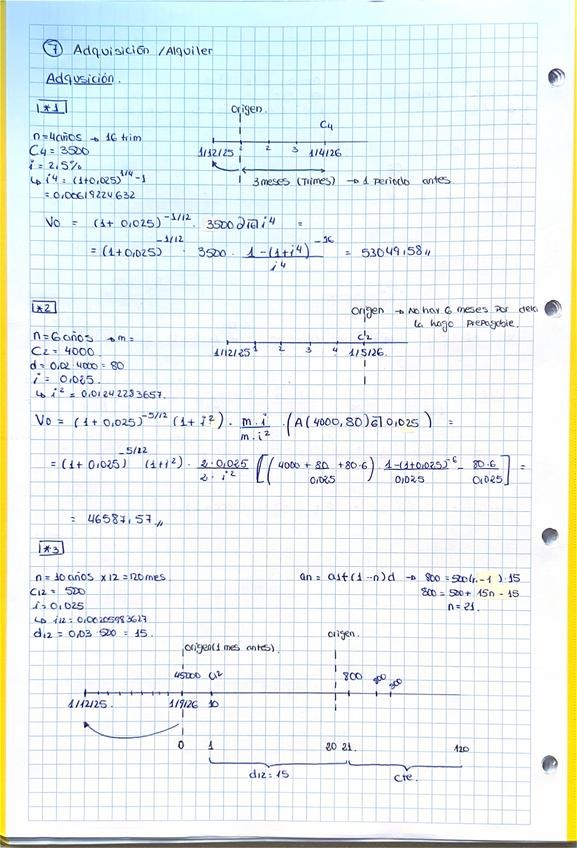 7 Adquisición / Alquiler
Adqusición.
*1
origen.
C4
n = 4 años → 16 trim
C4 = 3500
i = 2,5%
↳ i4 = (1+0,025)^1/4 - 1
= 0,00619224632
1/12/25 1 2 3 1/4/26
3 meses (Trimes) → 1 Periodo antes.
V0 = (1 + 0,025)^-1/12 · 3500 a 16 i4 =
= (1+0,025)^-1/12 · 3500 · 1-(1+i4)^-16 / i4 = 53049,58,,
*2
origen → No hay 6 meses Por
la hago Prepagable.
n = 6 años → m =
C2 = 4000
d = 0,02 · 4000 = 80
i = 0,025.
↳ i2 = 0,01242283657.
C2
1/12/25 1 2 3 4 1/5/26.
V0 = (1 + 0,025)^-5/12 (1 + i2) · m·i / m·i2 · (A(4000,80) 6 0,025) =
= (1 + 0,025)^-5/12 (1+i2) · 2·0,025 / 2·i2 [(4000 + 80 / 0,025 + 80·6) 1-(1+0,025)^-6 / 0,025 - 80·6 / 0,025] =
= 46587,57,,
*3
n = 10 años x 12 = 120 mes.
C12 = 500
i = 0,025
↳ i12 = 0,00205983627
d12 = 0,03 · 500 = 15.
an = a1+(1-n)d → 800 = 500(n-1)·15
800 = 500 + 15n - 15
n = 21.
origen (1 mes antes).
origen.
45000 C12 800 800 800
1/12/25. 1/9/26 10
0 1 20 21. 120
d12 = 15 cte.